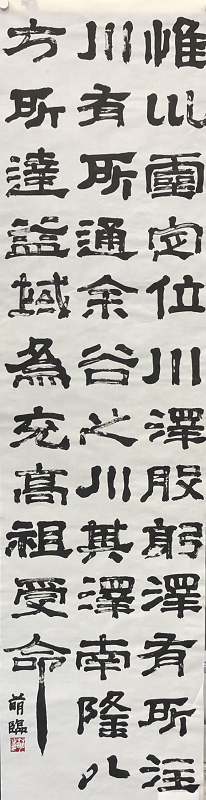 惟巛靈定位川澤股躬澤有所注
川有所通余谷之川其澤南隆八
方所達益域為充高祖受命
萌臨